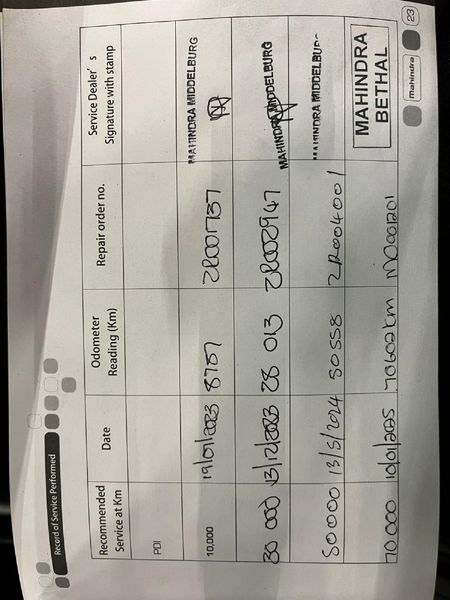 Record of Service Performed
Recommended Service at Km Date Odometer Reading (Km) Repair order no. Service Dealer' s Signature with stamp
PDI
10,000 19/01/2023 8757 MAHINDRA MIDDELBURG
30 000 13/12/2023 28 013 2R002947 MAHINDRA MIDDELBURG
50000 13/5/2024 50558 2R004001 MAHINDRA MIDDELBURG
70 000 10/01/2025 70602KM MAHINDRA BETHAL
mahindra 23